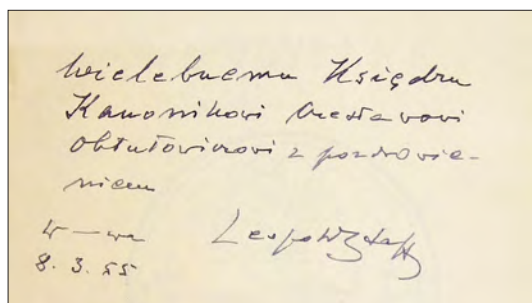 Wielebnemu Księdzu
Kanonikowi Czesławowi
Obtułowiczowi z pozdrowie-
niem
W–wa
8.3.55
Leopold Staff